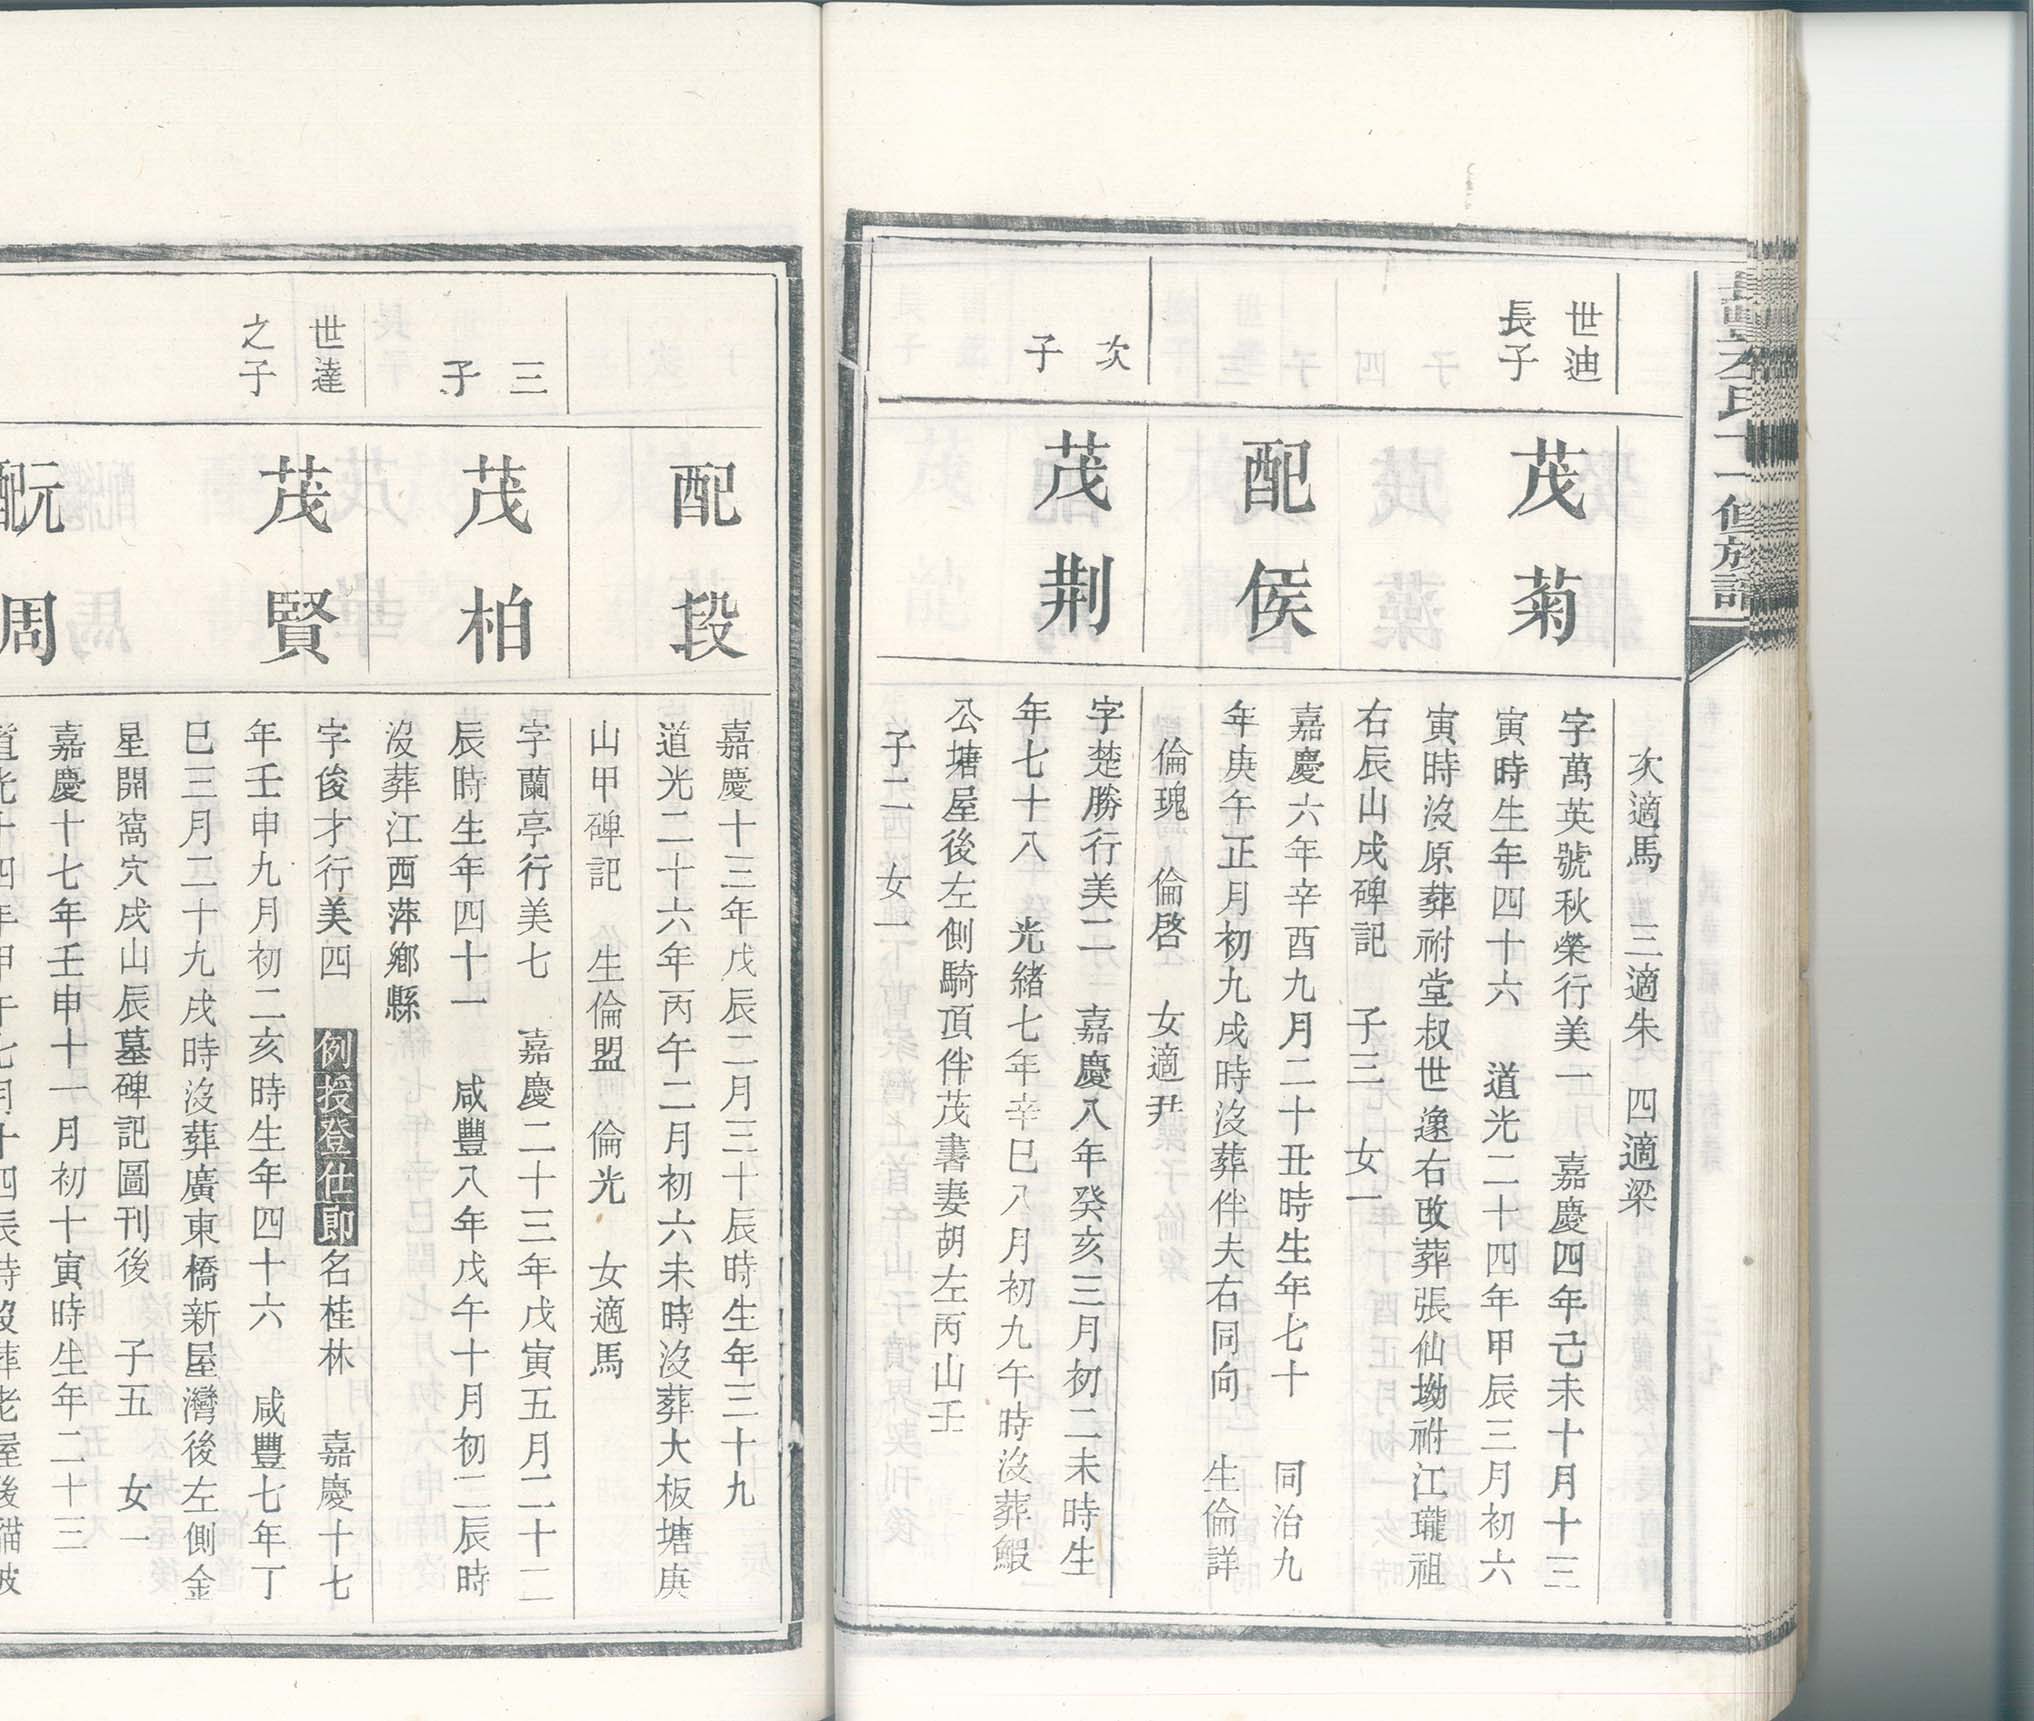 氏
修族譜
次適馬　三適朱　四適梁
世迪
長子
茂菊
字萬英號秋榮行美一　嘉慶四年己未十月十三
寅時生年四十六　道光二十四年甲辰三月初六
寅時沒原葬祔堂叔世逸右改葬張仙坳祔江瓏祖
右辰山戌碑記　子三　女一
配侯
嘉慶六年辛酉九月二十丑時生年七十　同治九
年庚午正月初九戌時沒葬伴夫右同向　生倫詳
倫瑰　倫啓　女適尹
次
子
茂荆
字楚勝行美二　嘉慶八年癸亥三月初二未時生
年七十八　光緒七年辛巳八月初九午時沒葬鰕
公塘屋後左側騎頂伴茂書妻胡左丙山壬
子二　女一
配段
嘉慶十三年戊辰二月三十辰時生年三十九
道光二十六年丙午二月初六未時沒葬大板塘庚
山甲碑記　生倫盟　倫光　女適馬
三
子
茂柏
字蘭亭行美七　嘉慶二十三年戊寅五月二十二
辰時生年四十一　咸豐八年戊午十月初二辰時
沒葬江西萍鄉縣
世達
之子
茂賢
字俊才行美四　例授登仕郎名桂林　嘉慶十七
年壬申九月初二亥時生年四十六　咸豐七年丁
巳三月二十九戌時沒葬廣東橋新屋灣後左側金
星開窩穴戌山辰墓碑記圖刊後　子五　女一
周
嘉慶十七年壬申十一月初十寅時生年二十三
道光十四年甲午七月十四辰時沒葬老屋後貓